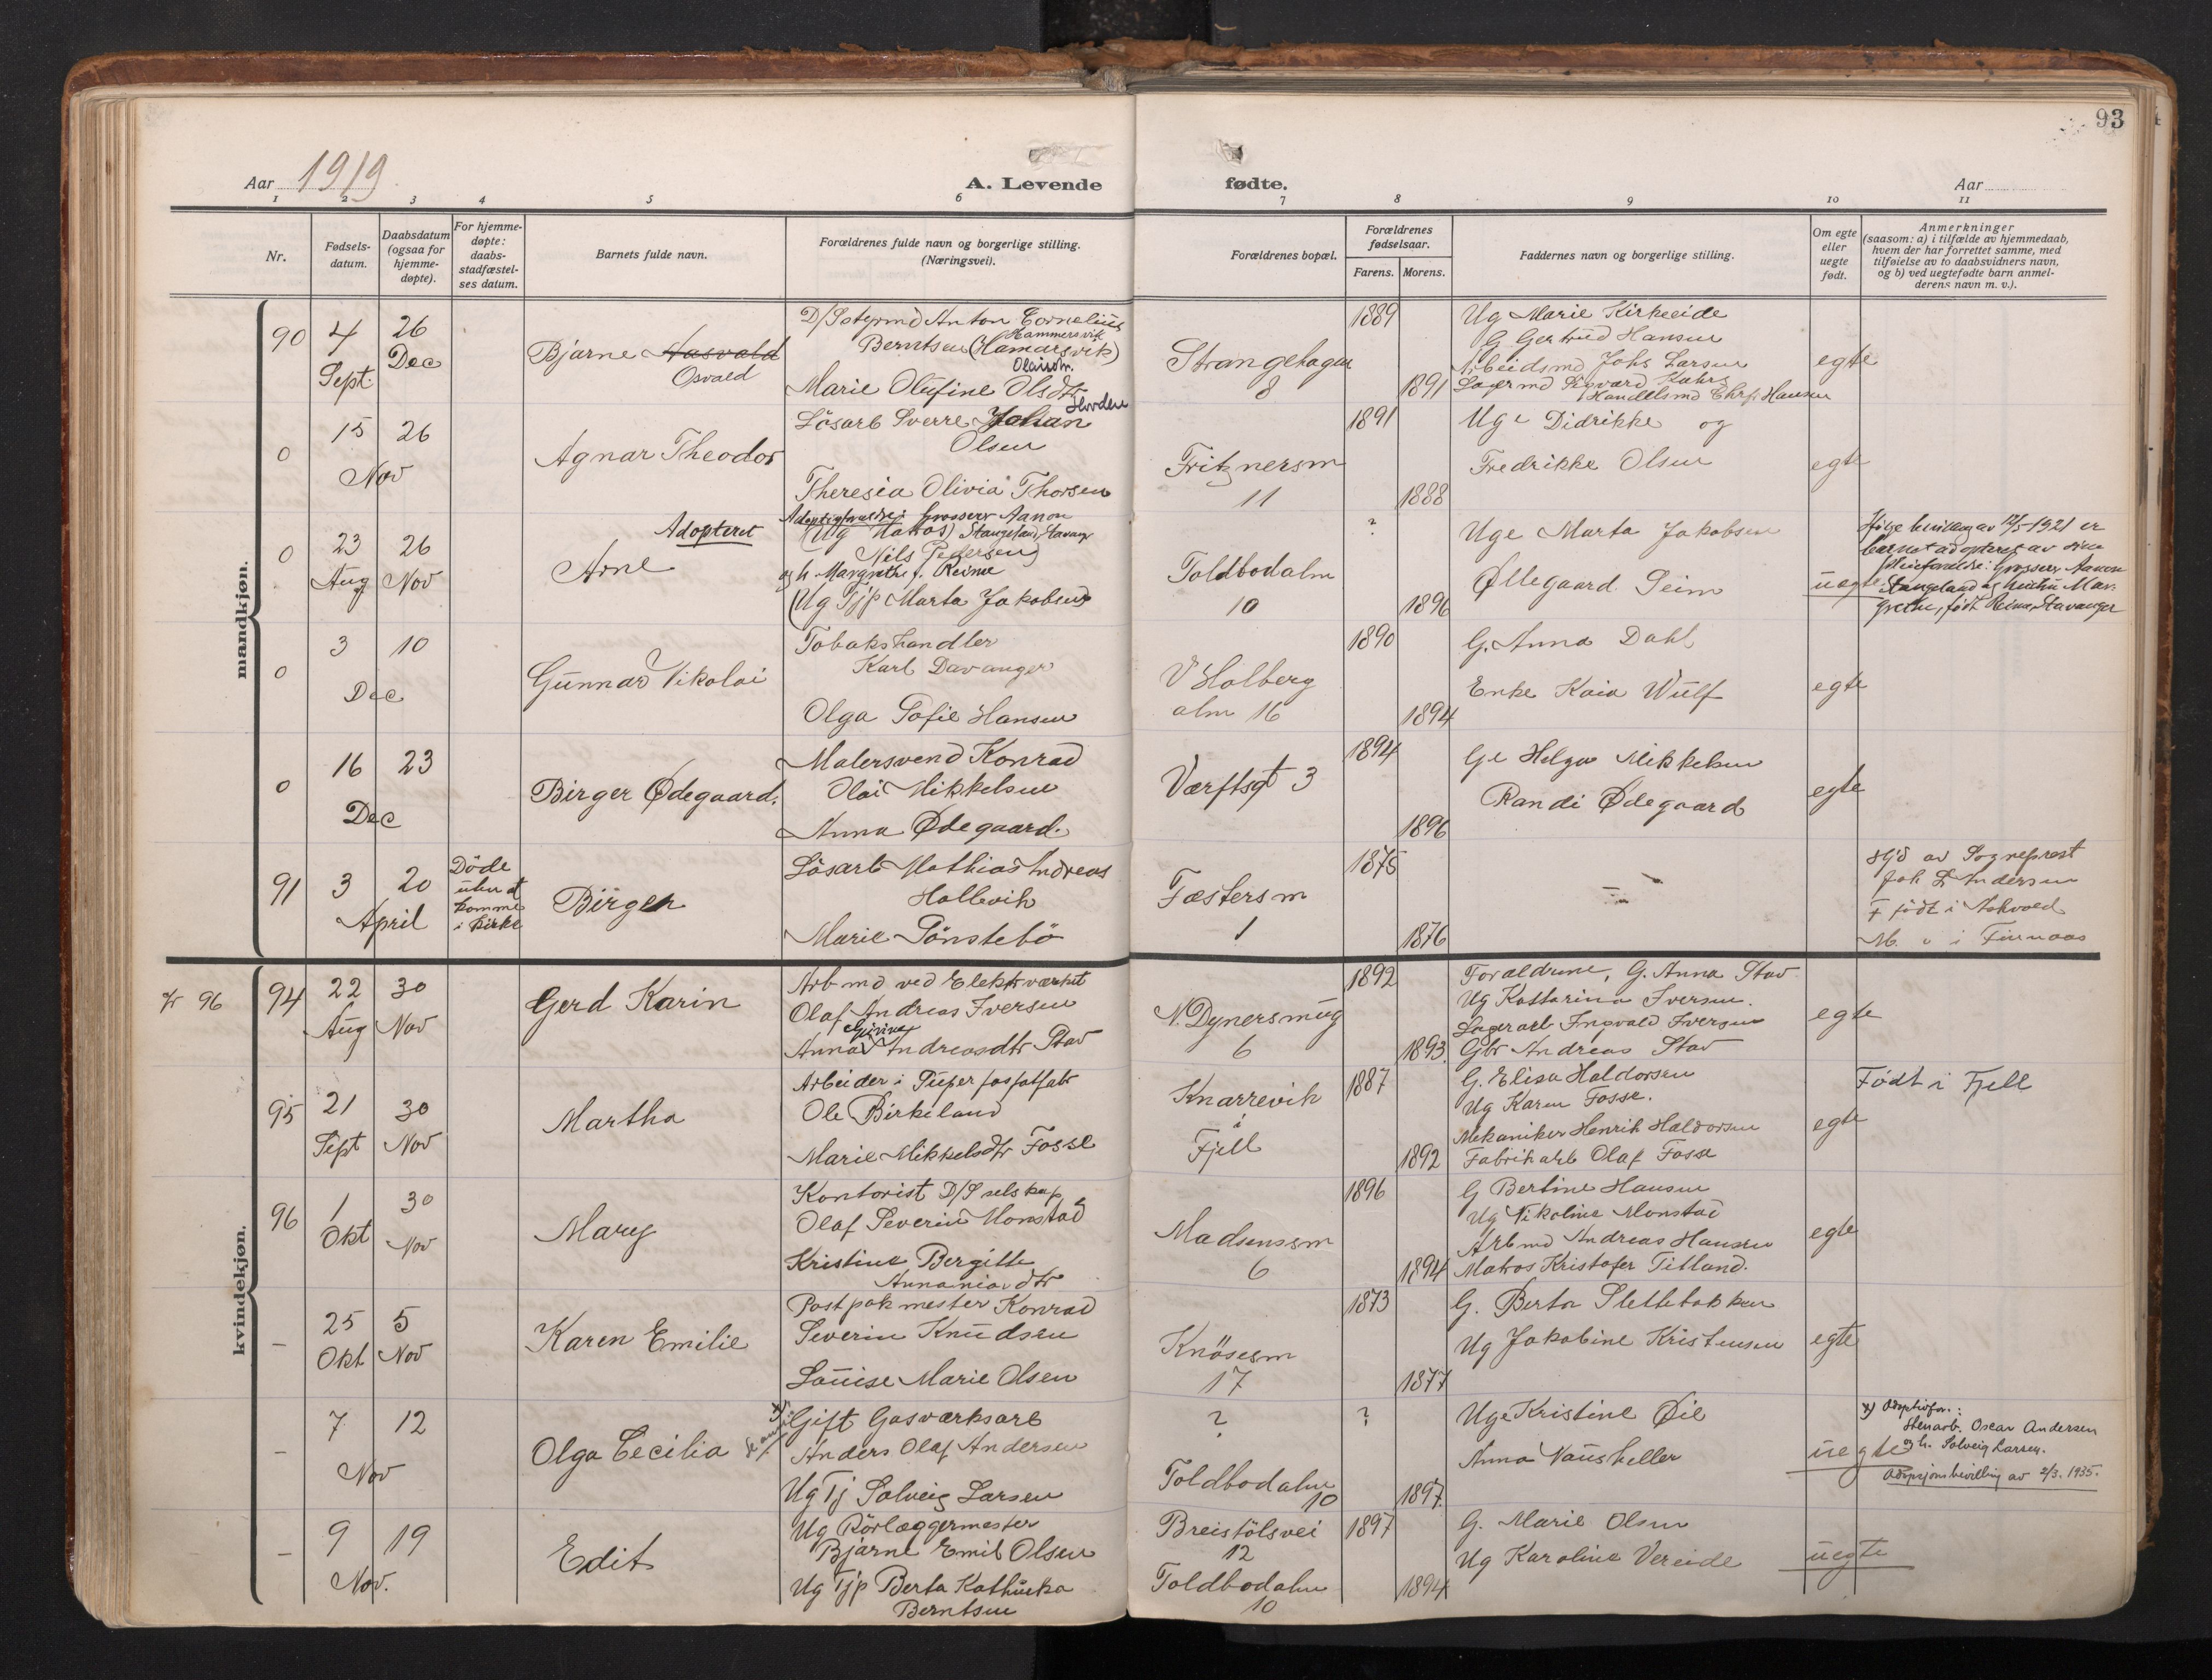 93
Aar 1919
A. Levende
fødte.
Aar
1 2 3 4 5 6 7 8 9 10 11
Nr.
Fødsels-
datum.
Daabsdatum
(ogsaa for
hjemme-
døpte).
For hjemme-
døpte:
daabs-
stadfæstel-
ses datum.
Barnets fulde navn.
Forældrenes fulde navn og borgerlige stilling.
(Næringsvei).
Forældrenes bopæl.
Forældrenes
fødselsaar.
Farens. Morens.
Faddernes navn og borgerlige stilling.
Om egte
eller
uegte
født.
Anmerkninger
(saasom: a) i tilfælde av hjemmedaab,
hvem der har forrettet samme, med
tilføielse av to daabsvidners navn,
og b) ved uegtefødte barn anmel-
derens navn m. v.).
mandkjøn.
90
4
Sept.
26
Dec
Bjarne Aasvald
Osvald
Anton Cornelius
Hammersvik
Berntsen (Hamarsvik)
Marie Olufine Olsdtr
Strangehagen
8
1889
1891
Ug Marie Kirkeeide
G Gertrud Hansen
Arbeidsmd Johs Larsen
Lagermd Sigvard Kahrs
Handelsmd Chr. Hansen
egte
0
15 26
Nov
Agnar Theodor
Løsarb Sverre Johan
Olsen
Theresia Olivia Thorsen
Fritznersm
11
1891
1888
Uge Didrikke og
Fredrikke Olsen
egte
0
23
Aug
26
Nov
Adopteret
Arne
Adoptivforældre: Grosserer Aanon
(Ug Matros) Stangeland, Stavanger
Nils Pedersen
og h. Margrethe f. Reime
(Ug Tjp Marta Jakobsen
Toldbodalm
10
?
1896
Uge Marta Jakobsen
Øllegaard Seim
uegte
Ifølge bevilling av 12/5-1921 er
barnet adopteret av sine
pleieforældre: Grosserer Aanon
Stangeland og hustru Mar-
grethe, født Reime, Stavanger
0
3 10
Dec
Gunnar Nikolai
Tobakshandler
Karl Davanger
Olga Sofie Hansen
V Holberg
alm 16
1890
1894
G. Anna Dahl
Enke Kaia Wulf
egte
0
16 23
Dec
Birger Ødegaard.
Malersvend Konrad
Olai Mikkelsen
Anna Ødegaard.
Værftsgt 3
1894
1896
Ge Helga Mikkelsen
Randi Ødegaard
egte
91
3 20
April
Döde
uten at
komme
i kirke
Birger
Løsarb Mathias Andreas
Hollevik
Marie Tönstebö
Fæstersm
1
1875
1876
Hjd av Sogneprest
Joh L Andersen
F født i Askvold
M. " i Finnaas
kvindekjøn.
94
22
Aug
30
Nov
Gerd Karin
Arbmd ved Elektrværket
Olaf Andreas Iversen
Anna Andreasdtr Stav
N. Dynersmug
6
1892
1893
Forældrene, G. Anna Stav
Ug Kattarina Iversen.
Lagerarb Ingvald Iversen
Gbr Andreas Stav
egte
95
21
Sept
30
Nov
Martha
Arbeider i Superfosfatfabr
Ole Birkeland
Marie Mikkelsdtr Fosse
Knarrevik
i
Fjell
1887
1892
G. Elisa Haldorsen
Ug Karen Fosse.
Mekaniker Henrik Haldorsen
Fabrikarb Olaf Fosse
egte
Født i Fjell
96
1
Okt
30
Nov
Mary
Kontorist D/S selskap
Olaf Severin Monstad
Kristine Bergitte
Annaniasdtr
Madsenssm
6
1896
1894
G Bertine Hansen
Ug Nikoline Monstad
Arbmd Andreas Hansen
Matros Kristofer Titland.
egte
25
Okt
5
Nov
Karen Emilie
Postpakmester Konrad
Severin Knudsen
Louise Marie Olsen
Knösesm
17
1873
1877
G. Berta Slettebakken
Ug Jakobine Kristensen
egte
7 12
Nov
Olga Cecilia
Gift Gasværksarb
Anders Olaf Andersen
Ug Tj Solveig Larsen
?
Toldbodalm
10
?
1897
Uge Kristine Øie
Anna Naustheller
uegte
x) Adoptivfor.:
Stenarb. Oscar Andersen
og h. Solveig Larsen.
Adopsjonsbevilling av 2/3. 1935.
9 19
Nov.
Edit
Ug Rörlæggermester
Bjarne Emil Olsen
Ug Tjp Berta Kathinka
Berntsen
Breistölsvei
12
Toldbodalm
10
1897
1894
G. Marie Olsen
Ug Karoline Vereide
uegte